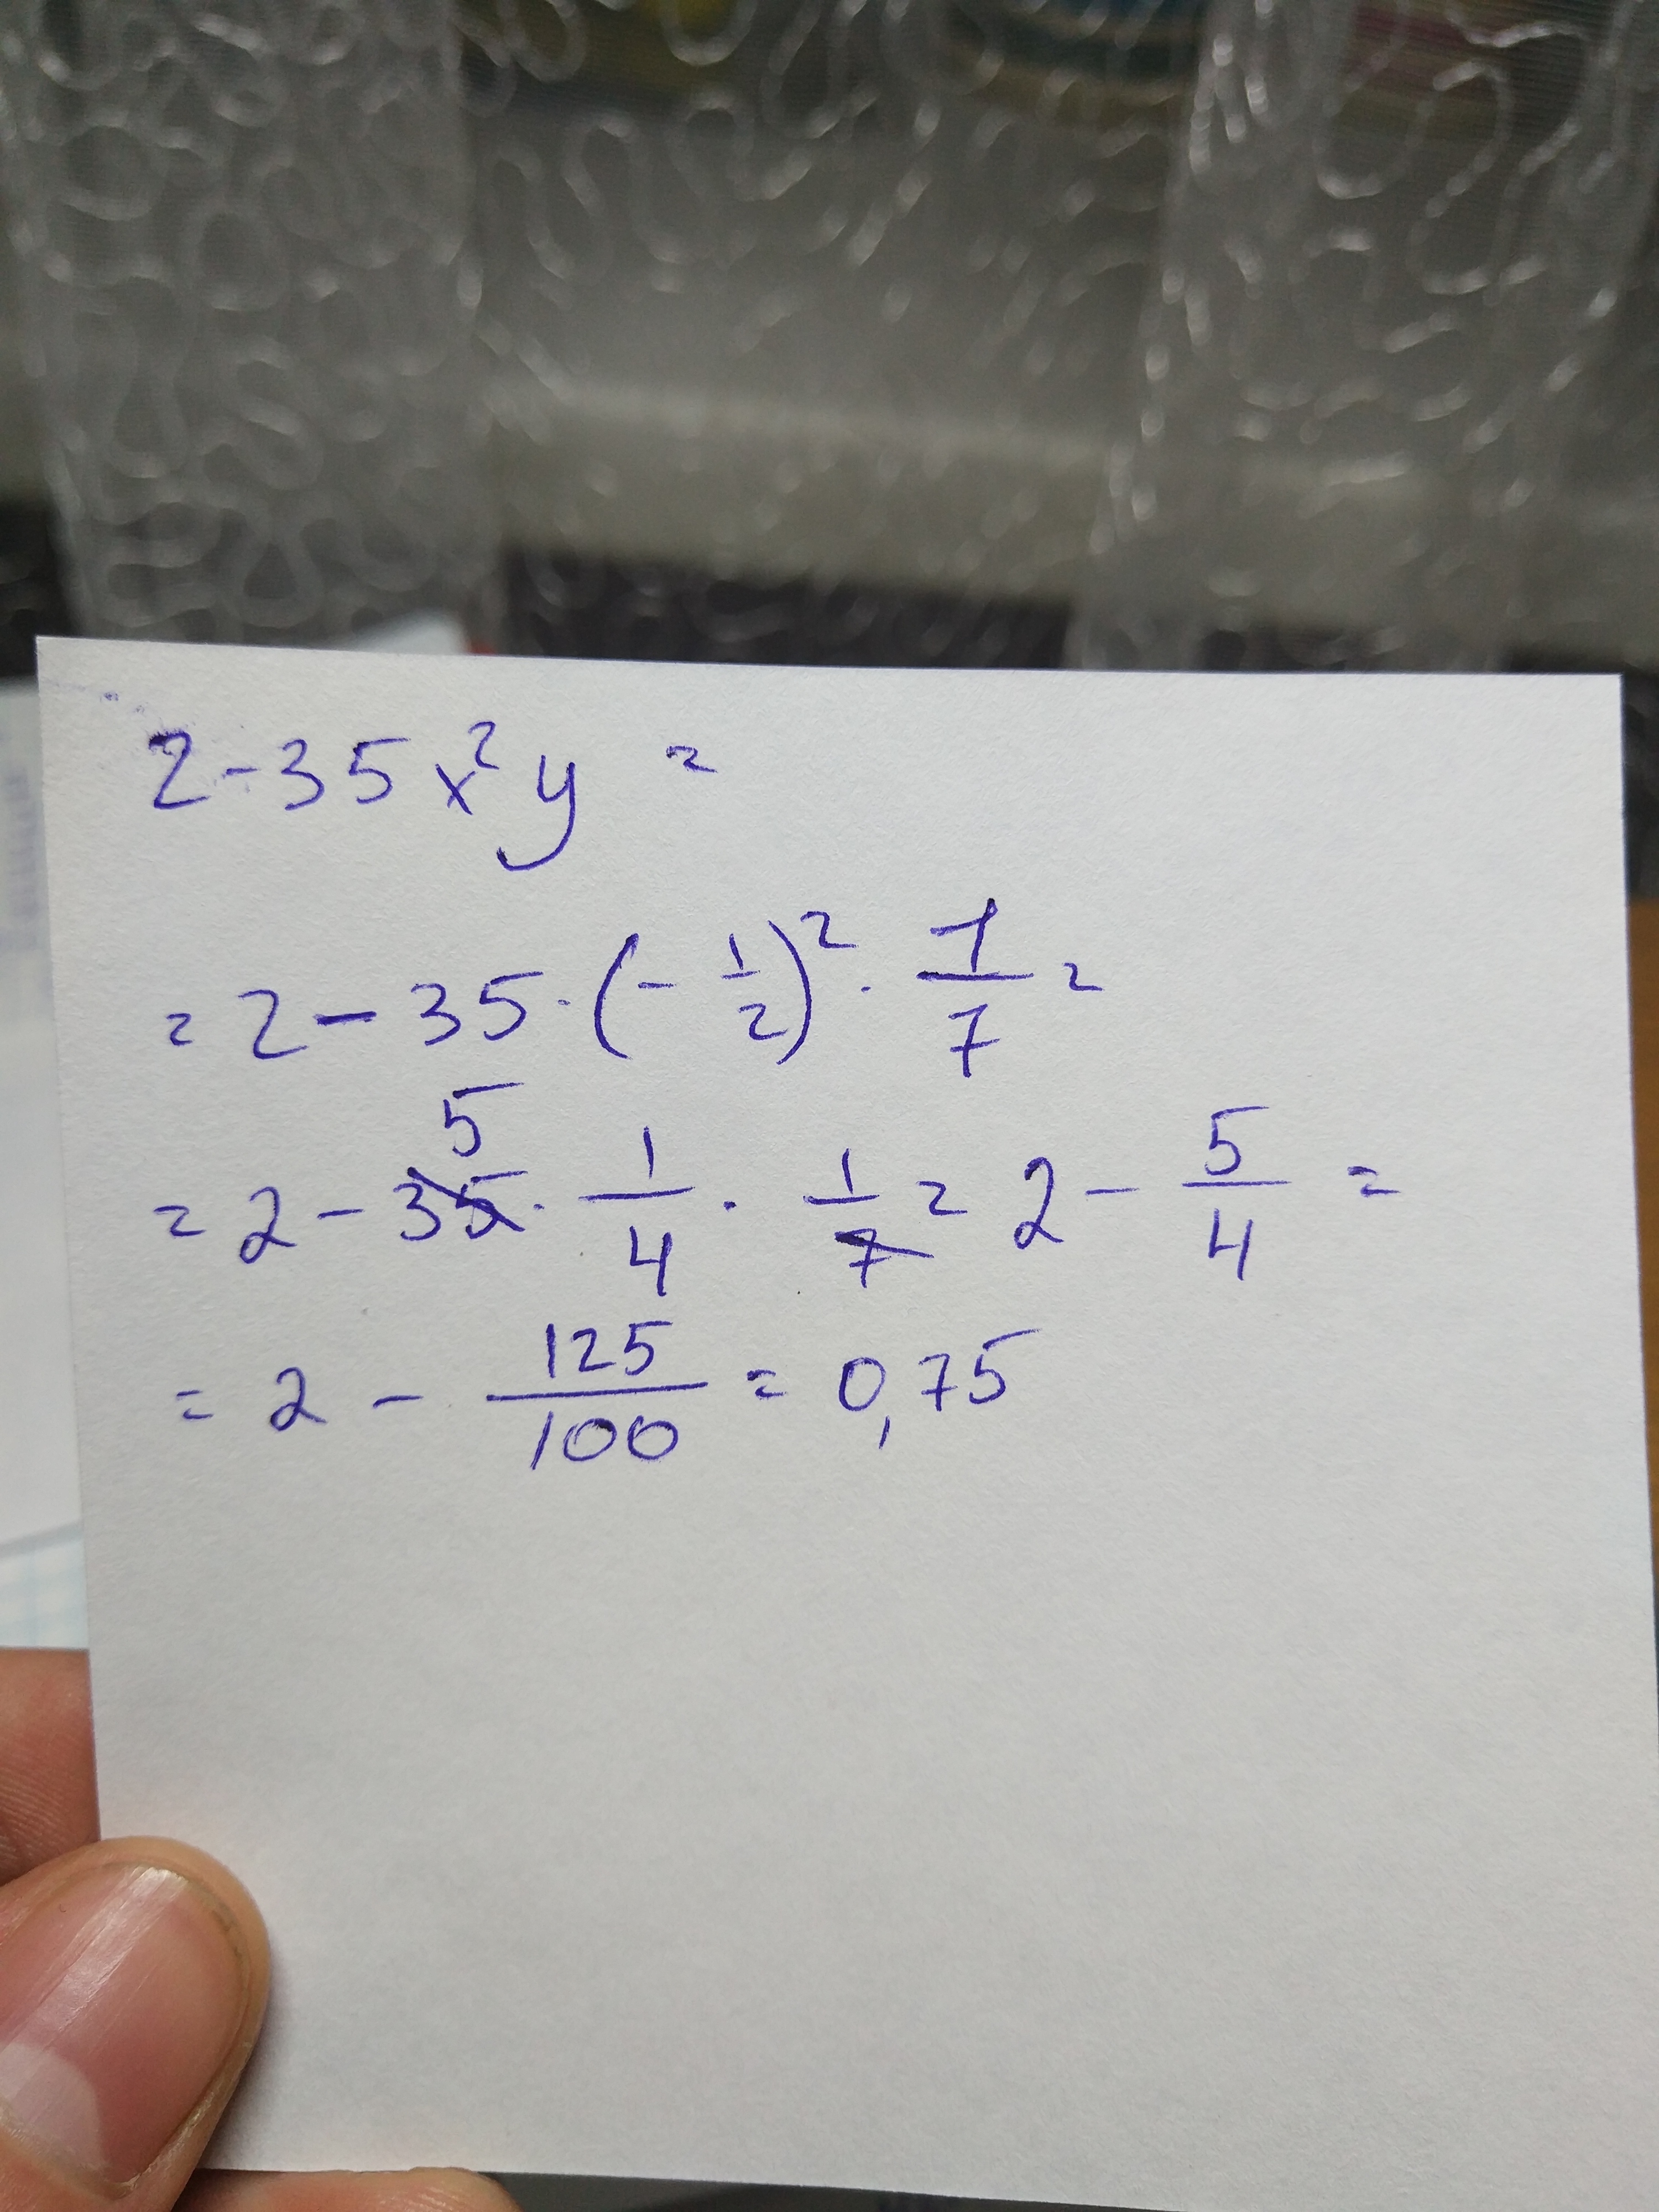 2-35x²y =
= 2 - 35 · (- 1/2)² · 1/7 =
= 2 - 35 5 · 1/4 · 1/7 = 2 - 5/4 =
= 2 - 125/100 = 0,75